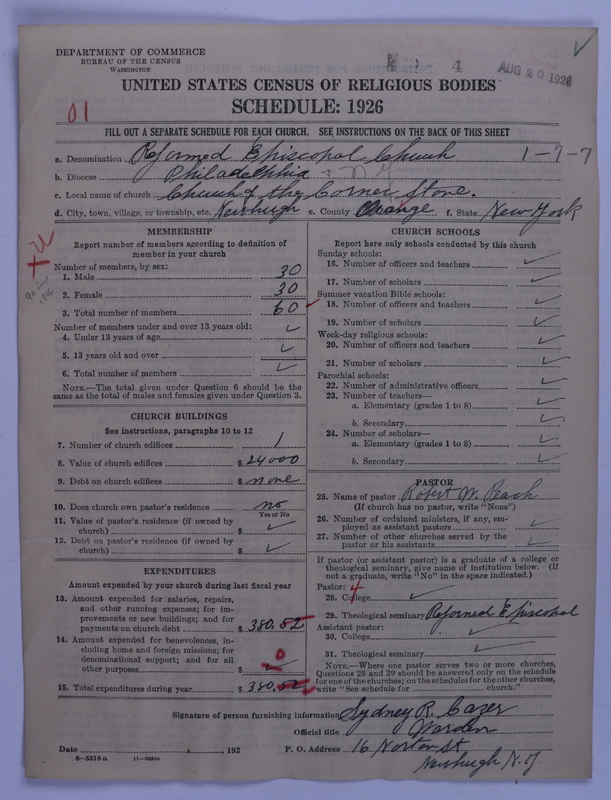 DEPARTMENT OF COMMERCE
BUREAU OF THE CENSUS
WASHINGTON
4
AUG 20 1926
UNITED STATES CENSUS OF RELIGIOUS BODIES
SCHEDULE: 1926
01
FILL OUT A SEPARATE SCHEDULE FOR EACH CHURCH. SEE INSTRUCTIONS ON THE BACK OF THIS SHEET
a. Denomination Reformed Episcopal Church 1-7-7
b. Diocese Philadelphia + N.Y
c. Local name of church Church of the Corner Stone.
d. City, town, village, or township, etc. Newburgh e. County Orange f. State New York
MEMBERSHIP
Report number of members according to definition of
member in your church
Number of members, by sex:
1. Male 30
2. Female 30
3. Total number of members 60
Number of members under and over 13 years old:
4. Under 13 years of age
5. 13 years old and over
6. Total number of members
NOTE.—The total given under Question 6 should be the
same as the total of males and females given under Question 3.
CHURCH BUILDINGS
See instructions, paragraphs 10 to 12
7. Number of church edifices 1
8. Value of church edifices $ 24000
9. Debt on church edifices $ none
10. Does church own pastor's residence no
Yes or No
11. Value of pastor's residence (if owned by
church) $
12. Debt on pastor's residence (if owned by
church) $
EXPENDITURES
Amount expended by your church during last fiscal year
13. Amount expended for salaries, repairs,
and other running expenses; for im-
provements or new buildings; and for
payments on church debt $ 380.52
14. Amount expended for benevolences, in-
cluding home and foreign missions; for
denominational support; and for all
other purposes $ 0
15. Total expenditures during year $ 380.52
CHURCH SCHOOLS
Report here only schools conducted by this church
Sunday schools:
16. Number of officers and teachers
17. Number of scholars
Summer vacation Bible schools:
18. Number of officers and teachers
19. Number of scholars
Week-day religious schools:
20. Number of officers and teachers
21. Number of scholars
Parochial schools:
22. Number of administrative officers
23. Number of teachers—
a. Elementary (grades 1 to 8)
b. Secondary
24. Number of scholars—
a. Elementary (grades 1 to 8)
b. Secondary
PASTOR
25. Name of pastor Robert W. Peach
(If church has no pastor, write "None")
26. Number of ordained ministers, if any, em-
ployed as assistant pastors
27. Number of other churches served by the
pastor or his assistants
If pastor (or assistant pastor) is a graduate of a college or
theological seminary, give name of institution below. (If
not a graduate, write "No" in the space indicated.)
Pastor: 4
28. College
29. Theological seminary Reformed Episcopal
Assistant pastor:
30. College
31. Theological seminary
NOTE.—Where one pastor serves two or more churches,
Questions 28 and 29 should be answered only on the schedule
for one of the churches; on the schedules for the other churches,
write "See schedule for church."
Signature of person furnishing information Sydney R. Cazer
Official title Warden
Date , 192 P. O. Address 16 Norton St
Newburgh N.Y.
8—5518 a